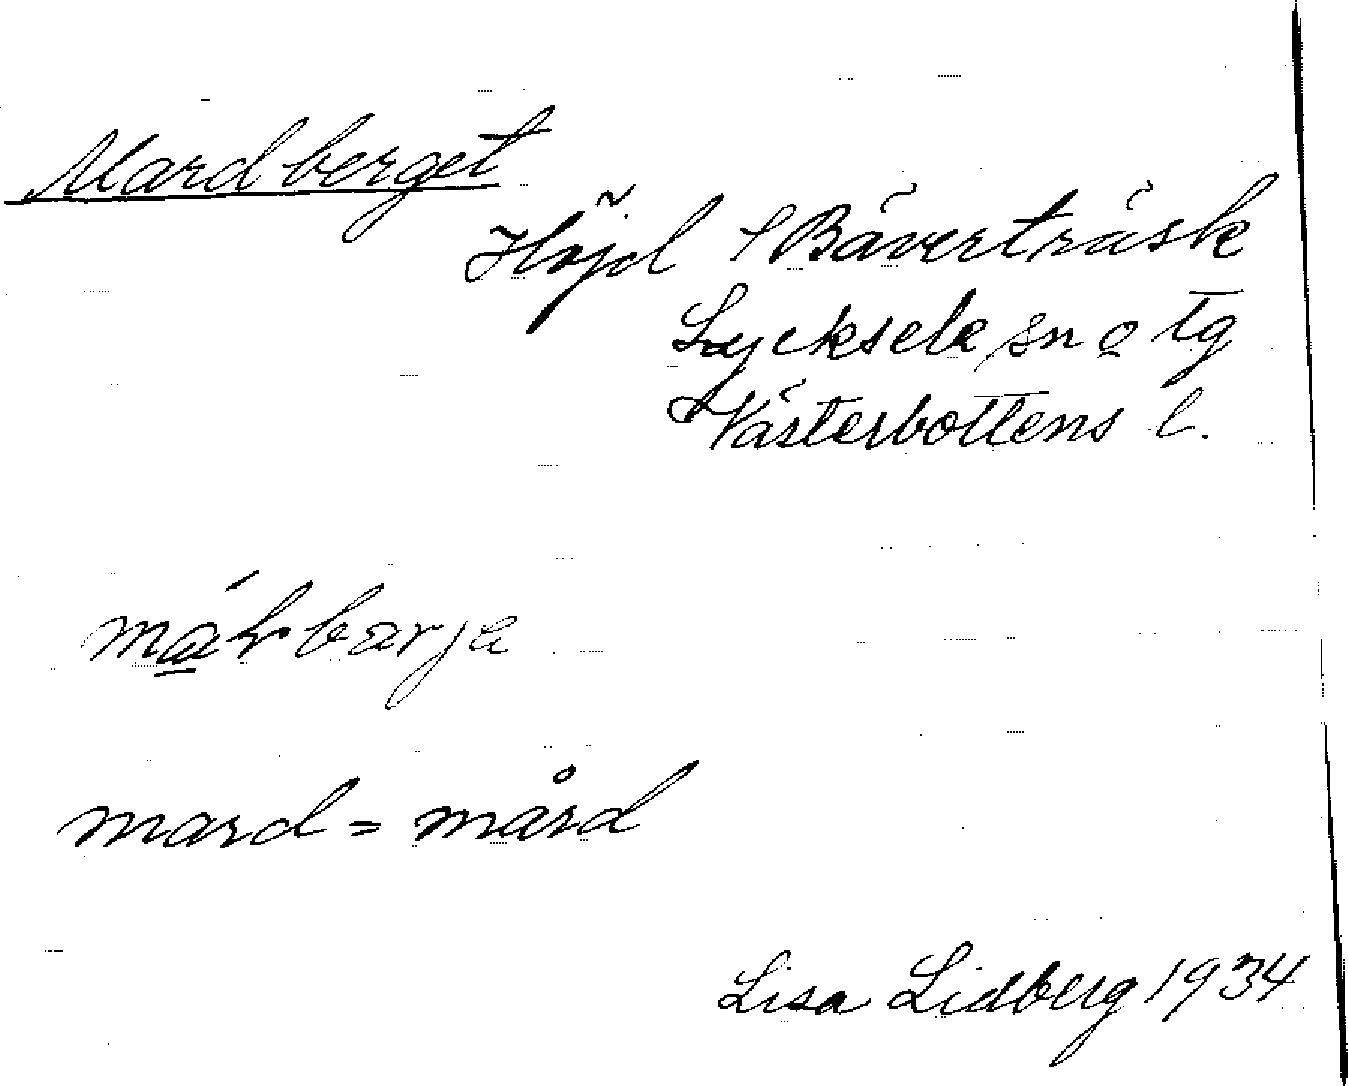 Mardberget
Höjd i Bäverträsk
Lycksele sn o tg
Västerbottens l.
márbærje
mard = mård
Lisa Lidberg 1934